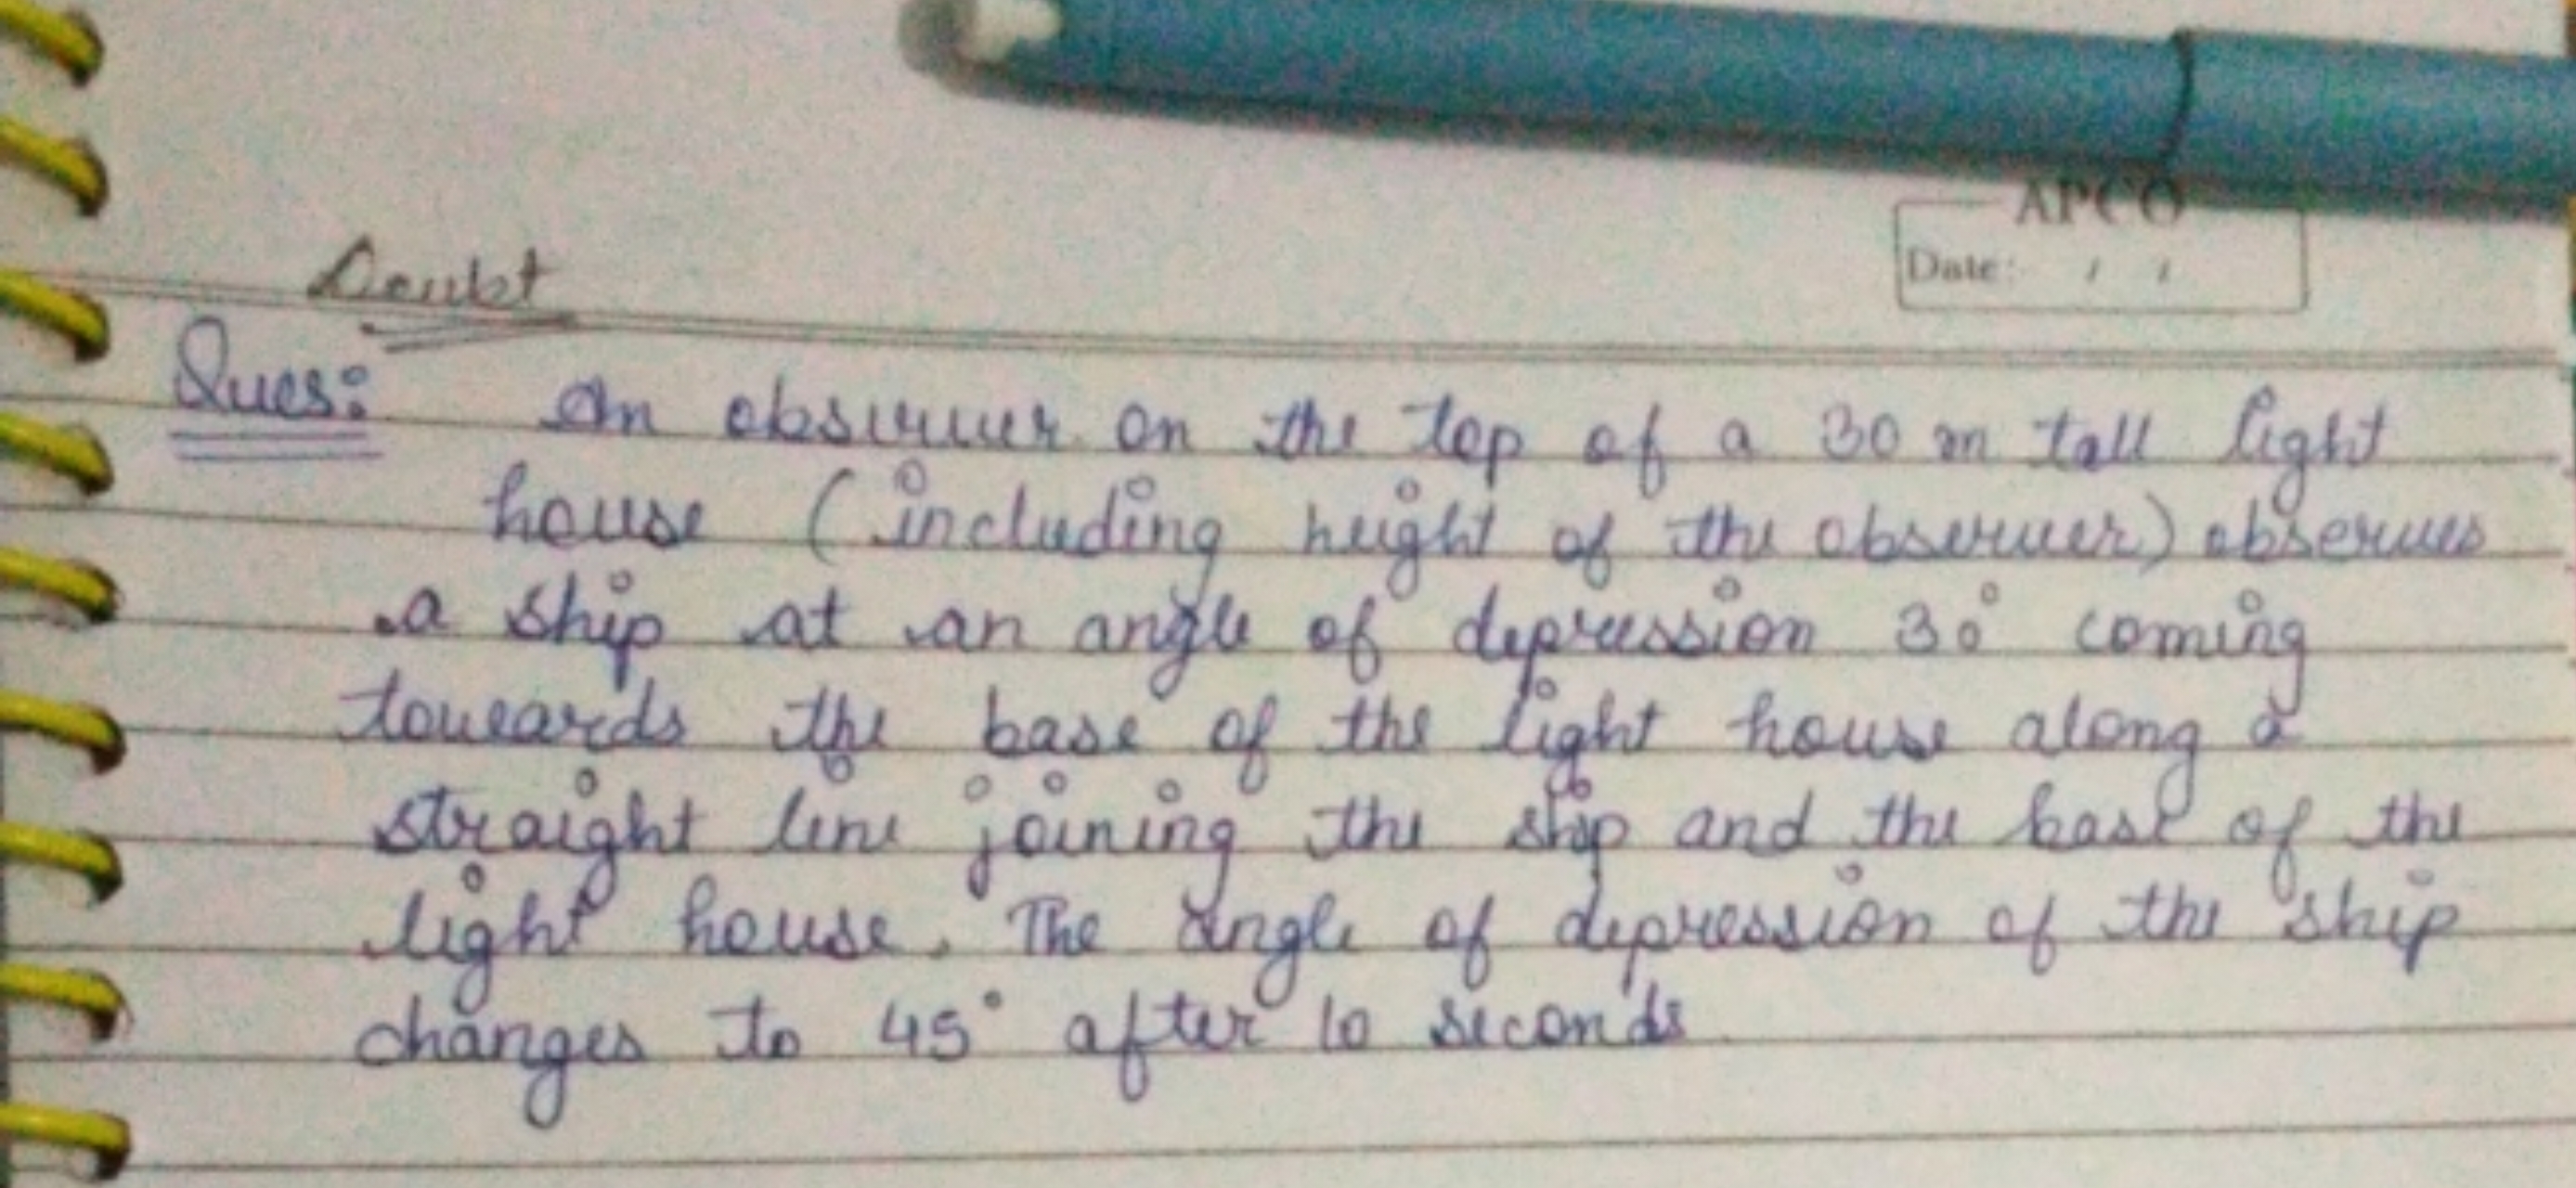 APCO
Date: / /
Doubt
Ques: An observer on the top of a 30 m tall light
house (including height of the observer) observes
a ship at an angle of depression 30° coming
towards the base of the light house along a
straight line joining the ship and the base of the
light house. The angle of depression of the ship
changes to 45° after 10 seconds